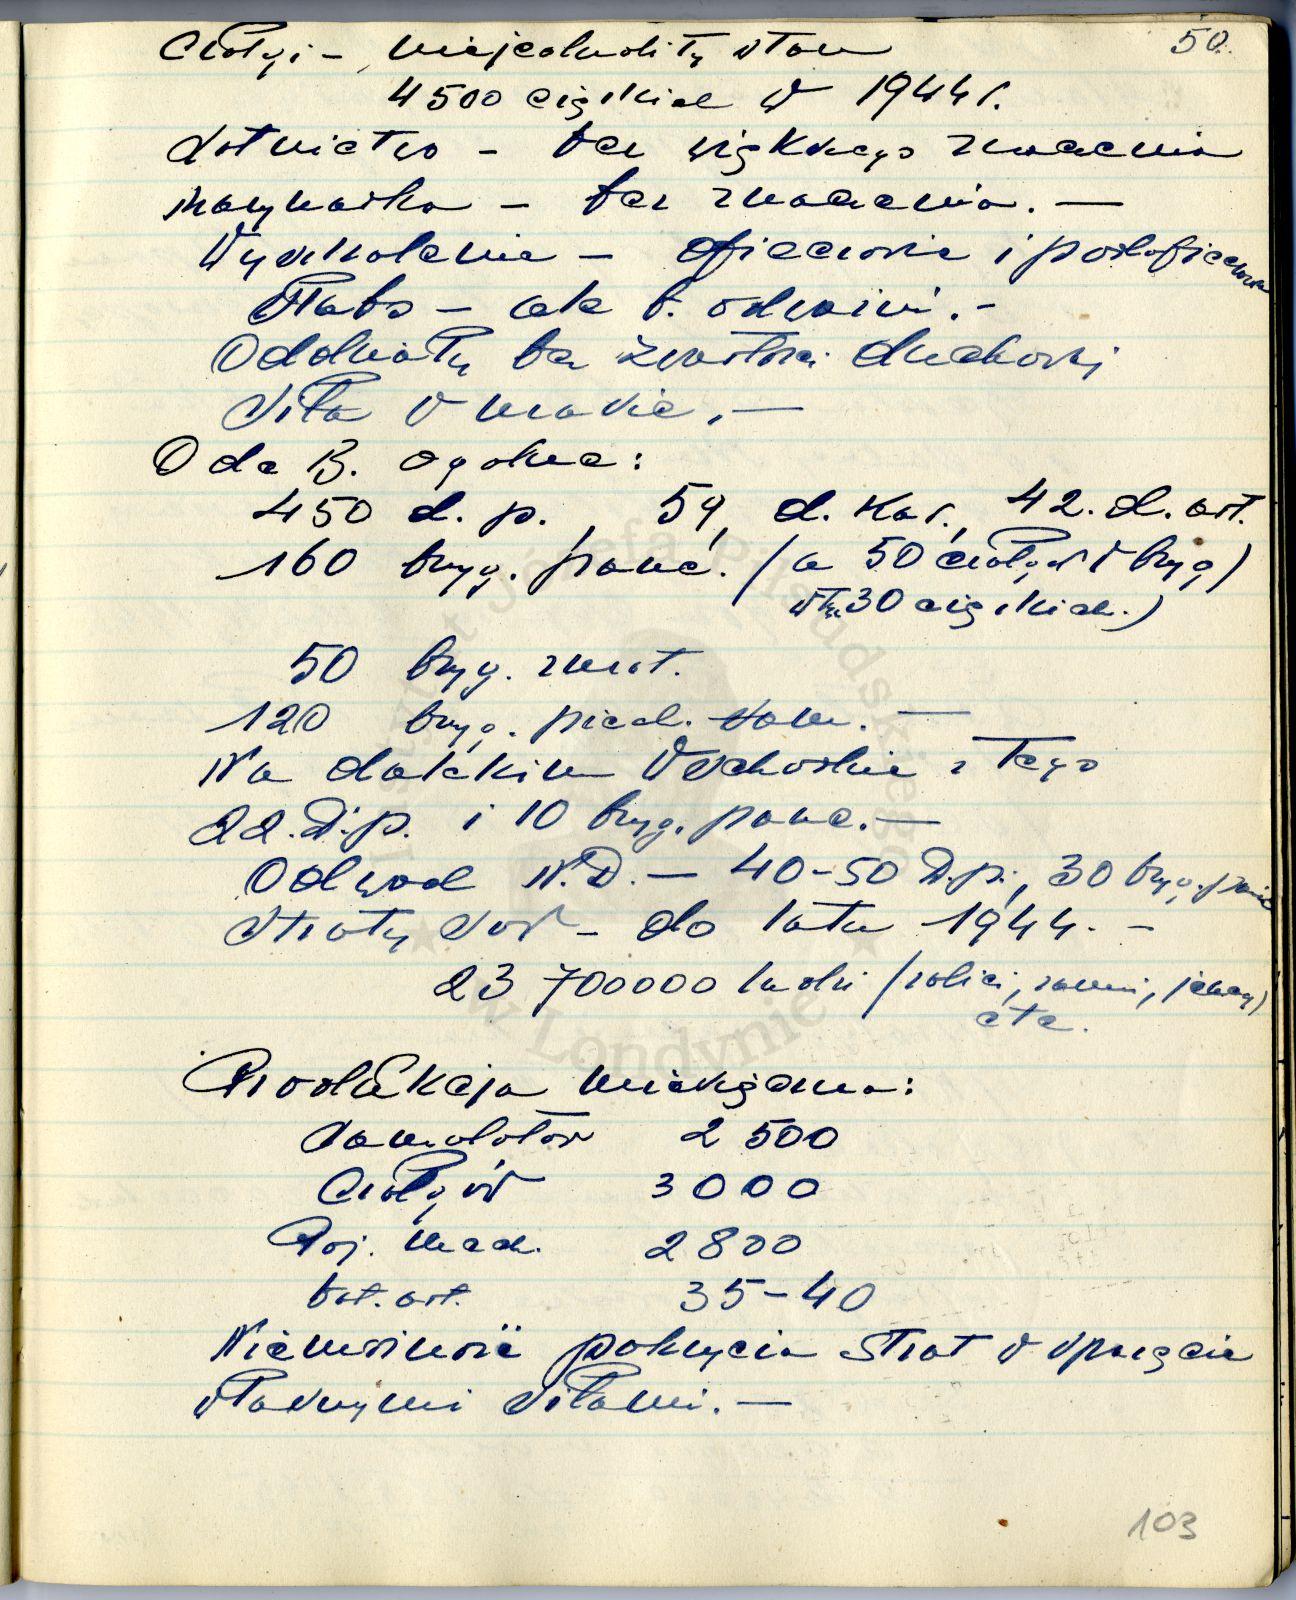 50.
Czołgi – niejednolity stan
4500 ciężkich w 1944 r.
Lotnictwo – bez większego znaczenia
Marynarka – bez znaczenia. —
Wyszkolenie – oficerowie i podoficerowie
słabo – ale b. odważni. –
Oddziały bez zwartości duchowej
Siła w masie. —
O de B. ogólne:
450 d. p., 59 d. kaw., 42. d. art.
160 bryg. panc. (a 50 czołgów w bryg)
w tym 30 ciężkich.)
50 bryg. zmot.
120 bryg. piech. sam. —
Na dalekim Wschodzie z tego
22. D.p. i 10 bryg. panc. —
Odwód N.D. — 40–50 D.p., 30 bryg. panc
Straty Sow – do lata 1944. –
23 700000 ludzi (zabici, ranni, jeńcy)
etc.
Produkcja miesięczna:
Samolotów 2 500
Czołgów 3000
Poj. mech. 2800
bat. art. 35–40
Niemożność pokrycia strat w sprzęcie
własnymi siłami. —
103
Instytut Józefa Piłsudskiego
★ w Londynie ★